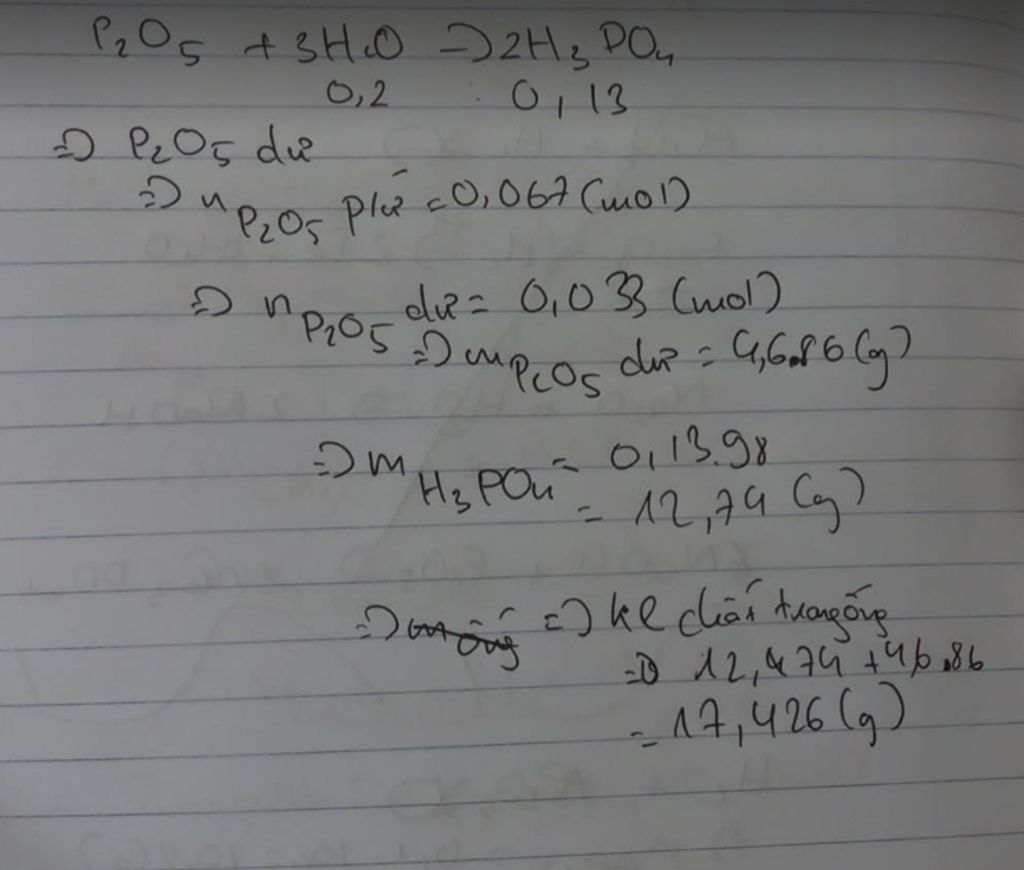 P₂O₅ + 3H₂O => 2H₃PO₄
0,2 0,13
=> P₂O₅ dư
=> n P₂O₅ p/ứ = 0,067 (mol)
=> n P₂O₅ dư = 0,033 (mol)
=> m P₂O₅ dư = 4,686 (g)
=> m H₃PO₄ = 0,13.98
= 12,74 (g)
=> m ống => kl chất trong ống
=> 12,474 + 4,6.86
= 17,426 (g)